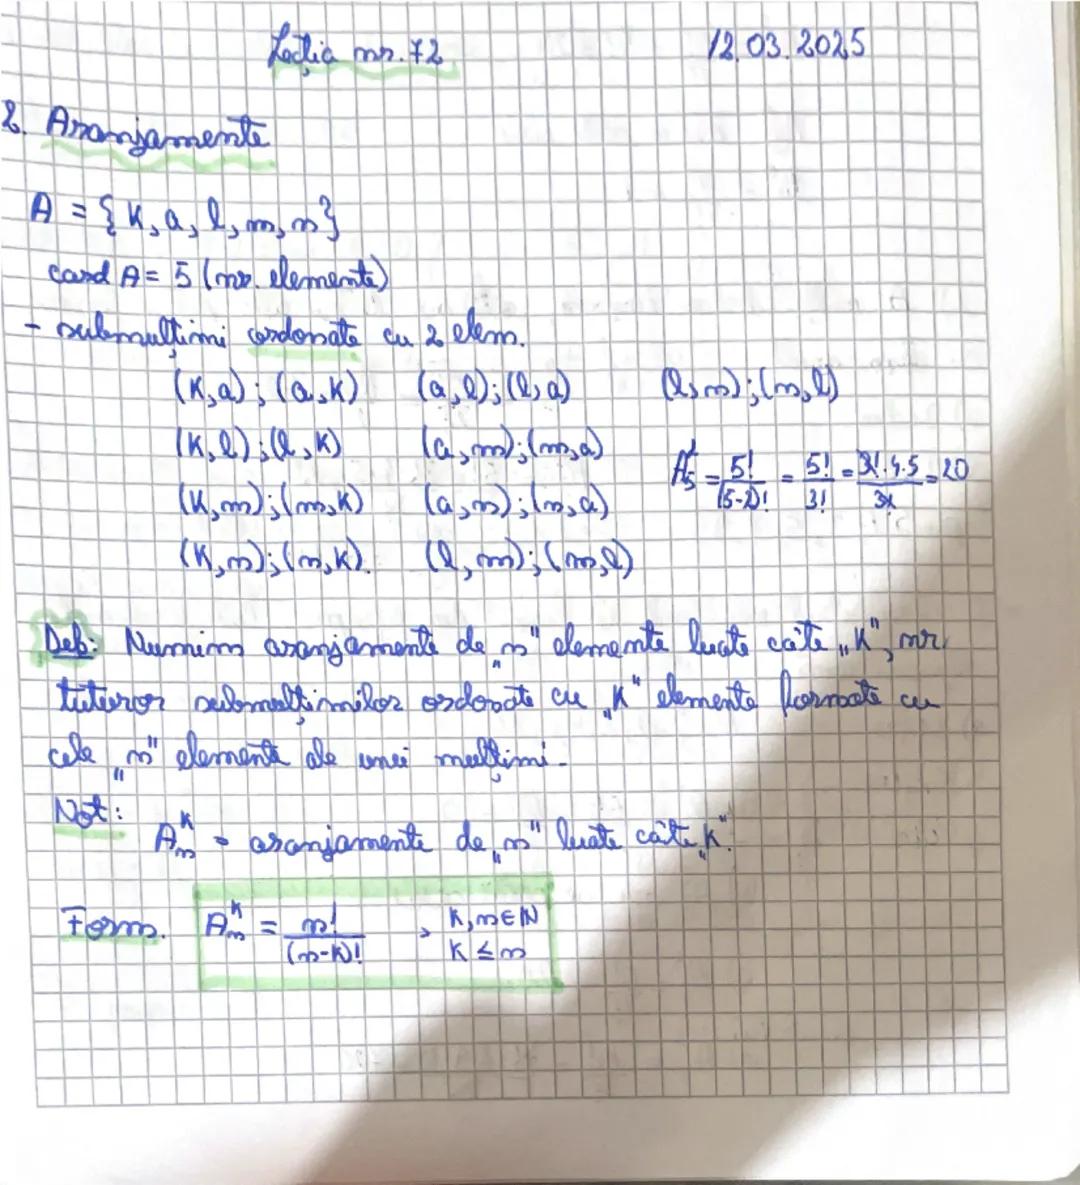 Lecția nr. 72 12.03.2025
2. Aranjamente
A = {k, a, l, m, n}
card A = 5 (nr. elemente)
- submulțimi ordonate cu 2 elem.
(k,a);(a,k) (a,l);(l,a) (l,n);(n,l)
(k,l);(l,k) (a,m);(m,a) A₅² = 5!/(5-2)! = 5!/3! = 3!·4·5/3! = 20
(k,m);(m,k) (a,n);(n,a)
(k,n);(n,k). (l,m);(m,l)
Def: Numim aranjamente de „n" elemente luate câte „k", nr.
tuturor submulțimilor ordonate cu „k" elemente formate cu
cele „n" elemente ale unei mulțimi.
Not:
Aₙᵏ - aranjamente de „n" luate câte „k".
Form. Aₙᵏ = n!/(n-k)! , k,n∈ℕ
k ≤ n